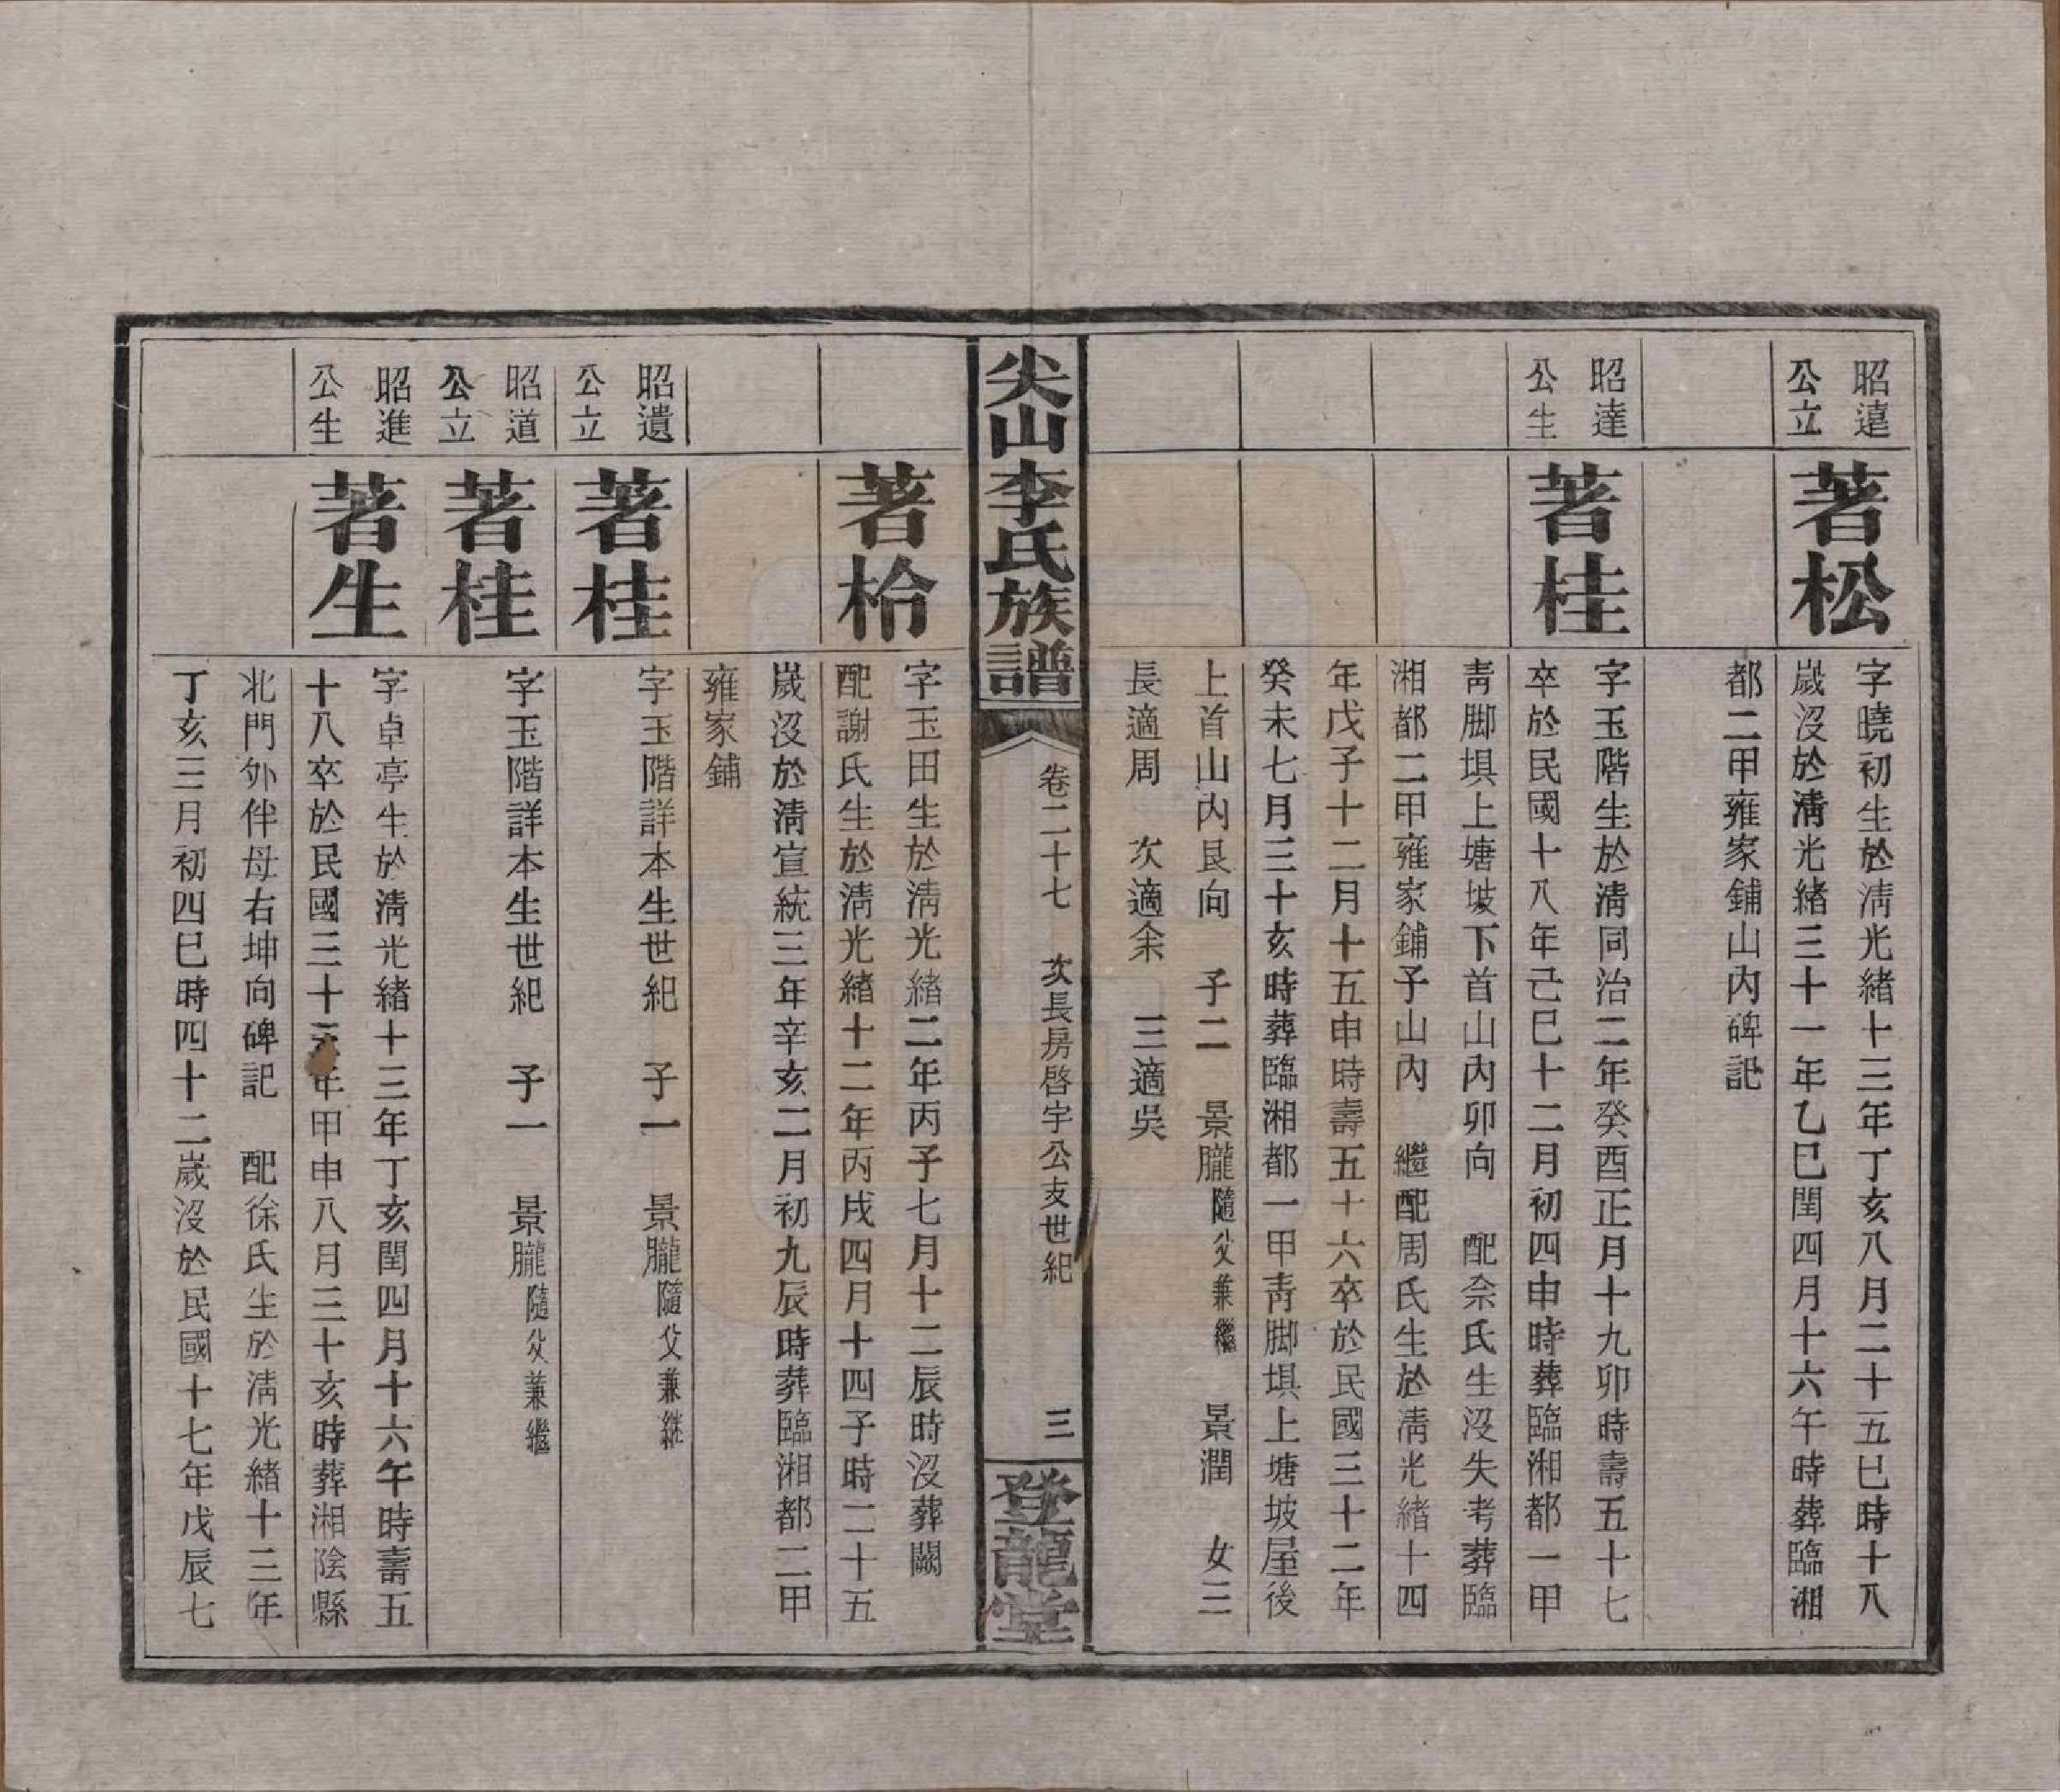 昭達
公立
著松
字曉初生於淸光緒十三年丁亥八月二十五巳時十八
歲沒於淸光緒三十一年乙巳閏四月十六午時葬臨湘
都二甲雍家鋪山內碑記
昭達
公生
著桂
字玉階生於淸同治二年癸酉正月十九卯時壽五十七
卒於民國十八年己巳十二月初四申時葬臨湘都一甲
靑脚埧上塘坡下首山內卯向 配佘氏生沒失考葬臨
湘都二甲雍家鋪子山內 繼配周氏生於淸光緒十四
年戊子十二月十五申時壽五十六卒於民國三十二年
癸未七月三十亥時葬臨湘都一甲靑脚埧上塘坡屋後
上首山內艮向 子二 景朧隨父兼繼 景潤 女三
長適周 次適余 三適吳
尖山李氏族譜
卷二十七 次長房啓宇公支世紀
三
登龍堂
著柃
字玉田生於淸光緒二年丙子七月十二辰時沒葬闕
配謝氏生於淸光緒十二年丙戌四月十四子時二十五
歲沒於淸宣統三年辛亥二月初九辰時葬臨湘都二甲
雍家鋪
昭遺
公立
著桂
字玉階詳本生世紀 子一 景朧隨父兼継
昭道
公立
著桂
字玉階詳本生世紀 子一 景朧隨父兼繼
昭進
公生
著生
字卓亭生於淸光緒十三年丁亥閏四月十六午時壽五
十八卒於民國三十三年甲申八月三十亥時葬湘陰縣
北門外伴母右坤向碑記 配徐氏生於淸光緒十三年
丁亥三月初四巳時四十二歲沒於民國十七年戊辰七